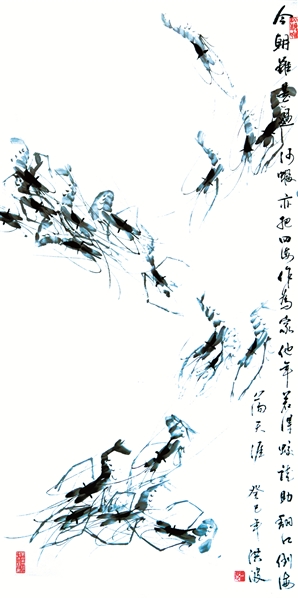 今朝雖是河蝦亦把四海作為家他年若得蛟龍助翻江倒海
滿天涯
癸巳年洪波